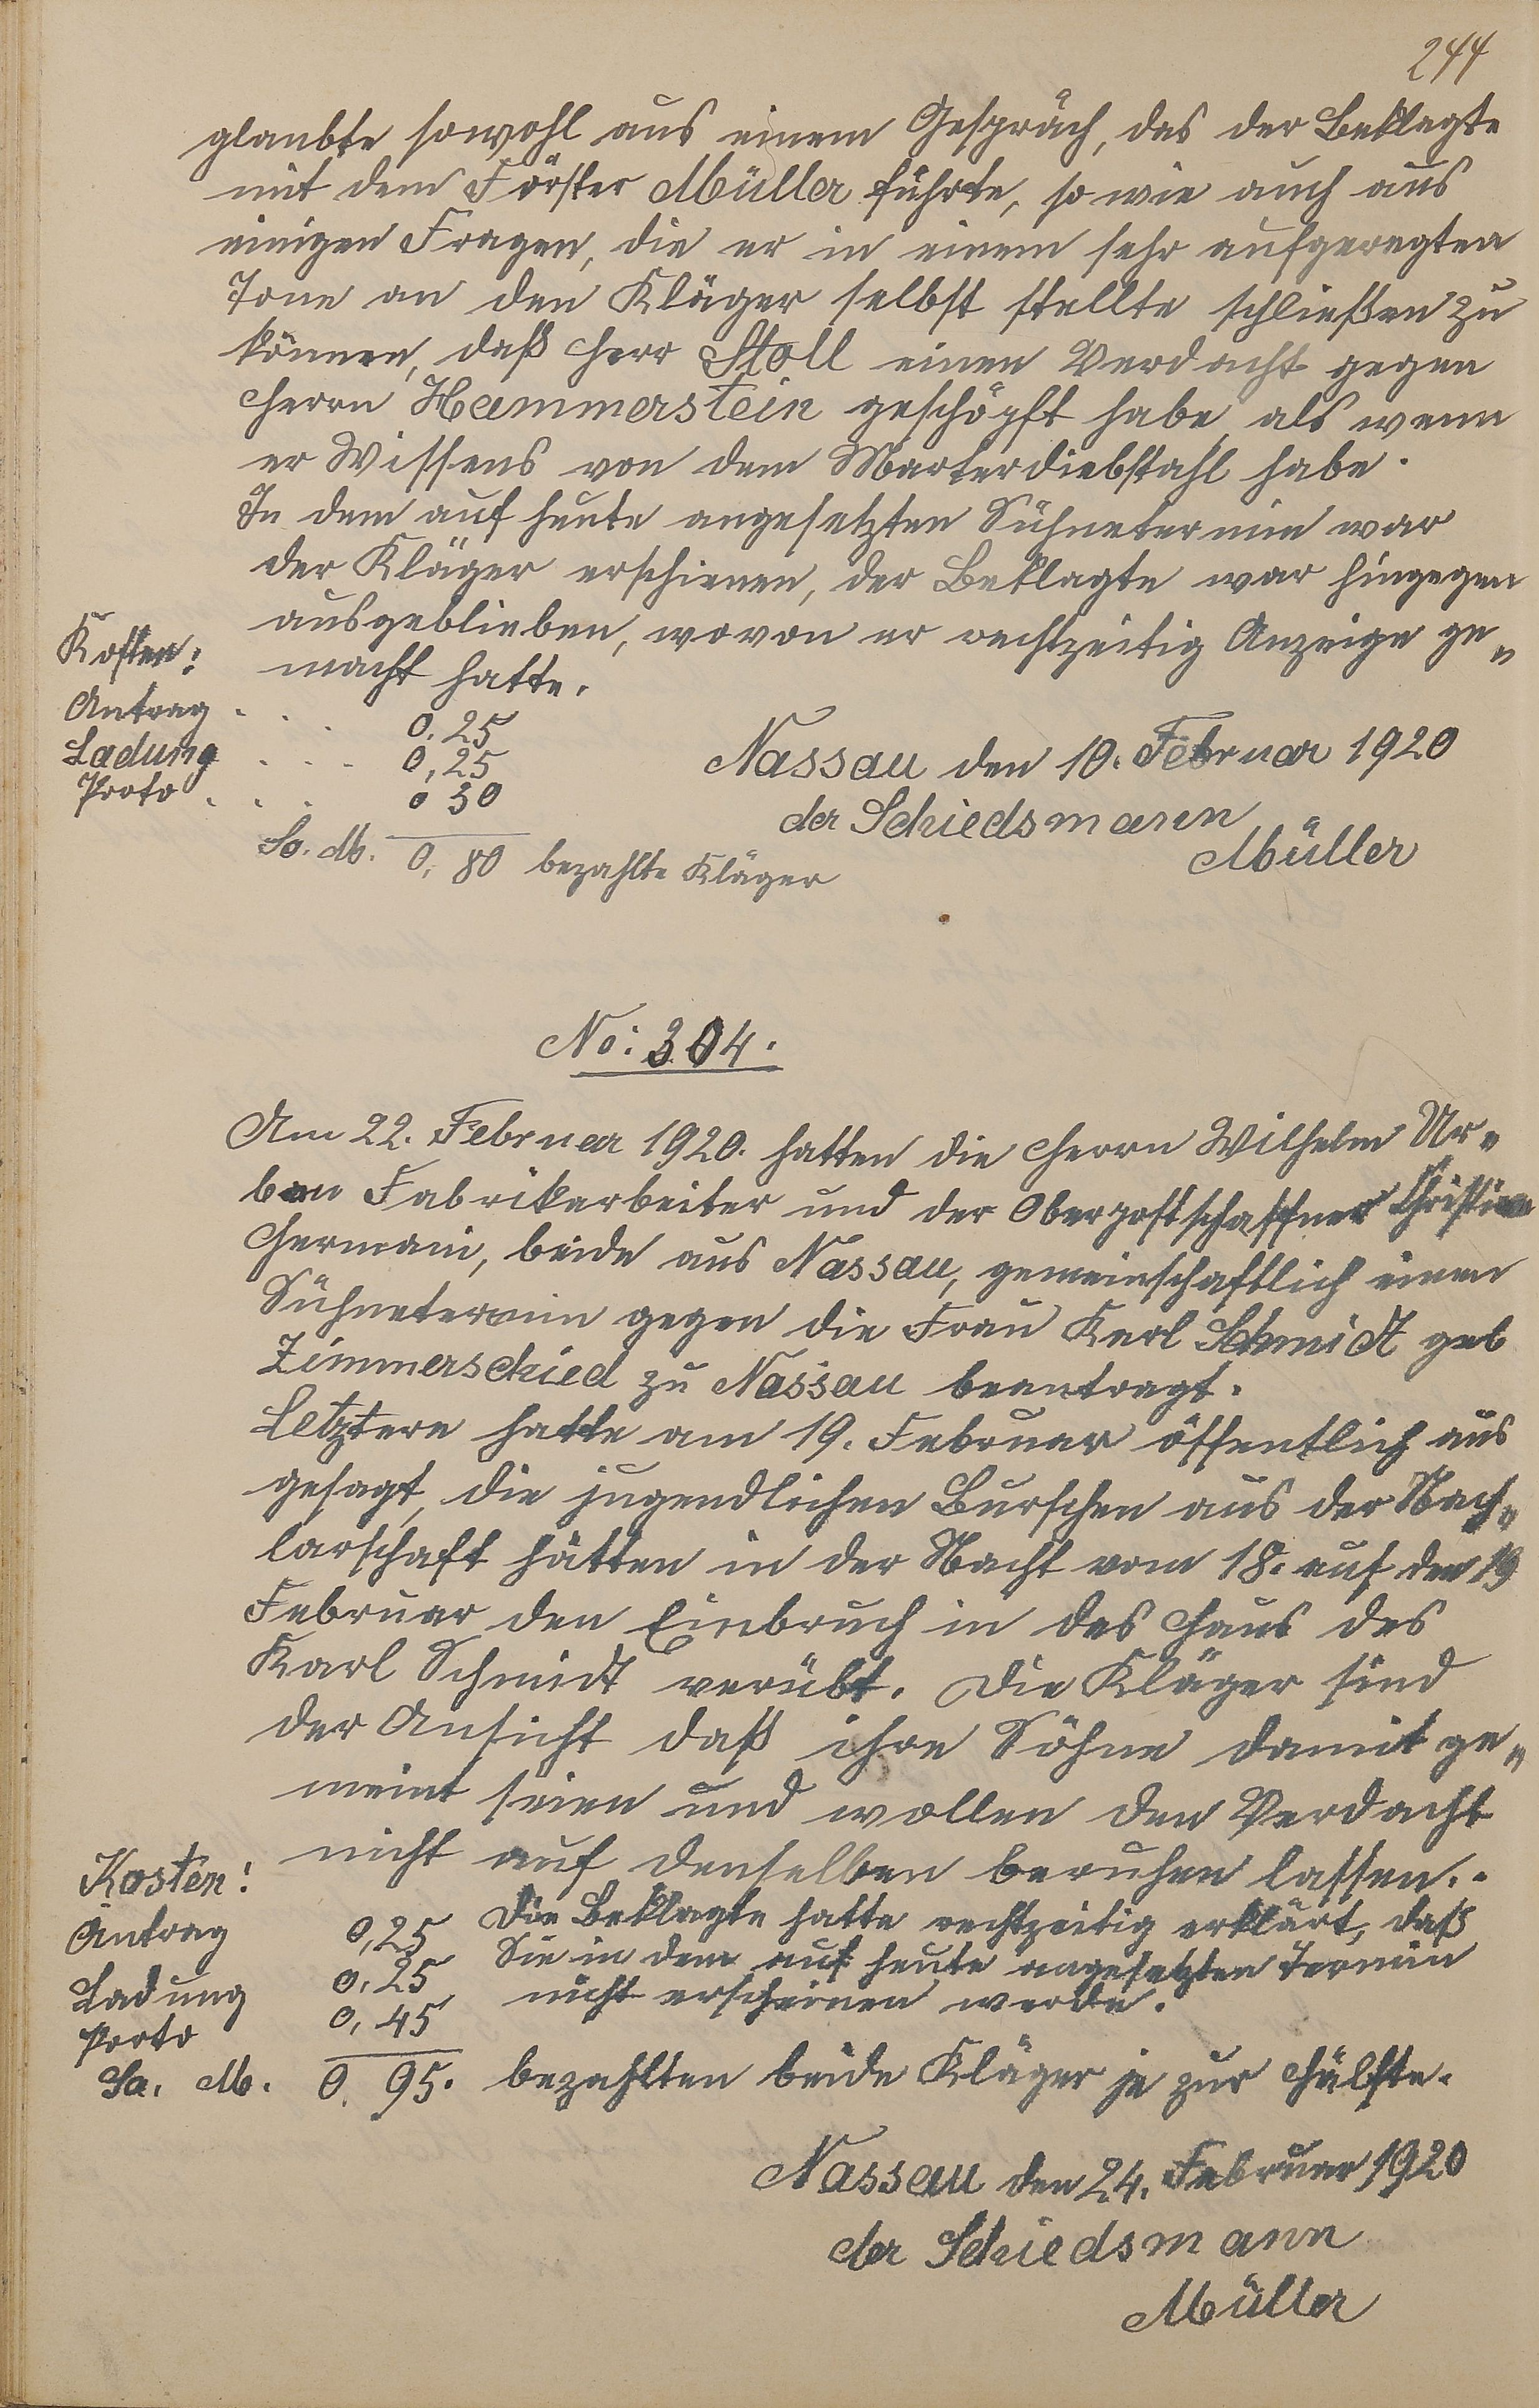 244
glaubte sowohl aus einem Gespräch, das der Beklagte
mit dem Förster Müller führte, so wie auch aus
einigen Fragen, die er in einem sehr aufgeregten
Tone an den Kläger selbst stellte schließen zu
können, daß Herr Stoll einen Verdacht gegen
Herrn Hammerstein geschöpft habe als wenn
er Wissens von dem Marterdiebstahl habe.
In dem auf heute angesetzten Sühnetermin war
der Kläger erschienen, der Beklagte war hingegen
ausgeblieben, wovon er rechtzeitig Anzeige ge-
macht hatte.
Kosten:
Antrag . . . 0,25
Ladung . . . 0,25
Porto . . . 0 30
Sa. M. 0,80 bezahlte Kläger
Nassau den 10. Februar 1920
der Schiedsmann
Müller
No: 304.
Am 22. Februar 1920. hatten die Herrn Wilhelm Ur-
ban Fabrikarbeiter und der Oberpostschaffner Christian
Germain, beide aus Nassau, gemeinschaftlich einen
Sühnetermin gegen die Frau Karl Schmidt geb
Zimmerschied zu Nassau beantragt.
Letztere hatte am 19. Februar öffentlich aus
gesagt, die jugendlichen Burschen aus der Nach-
barschaft hätten in der Nacht vom 18. auf den 19
Februar den Einbruch in das Haus des
Karl Schmidt verübt. Die Kläger sind
der Ansicht daß ihre Söhne damit ge-
meint seien und wollen den Verdacht
nicht auf denselben beruhen lassen.
Die Beklagte hatte rechtzeitig erklärt, daß
Sie in dem auf heute angesetzten Termin
nicht erscheinen werde.
Kosten:
Antrag 0,25
Ladung 0,25
Porto 0,45
Sa. M. 0,95. bezahlten beide Kläger je zur Hälfte.
Nassau den 24. Februar 1920
der Schiedsmann
Müller